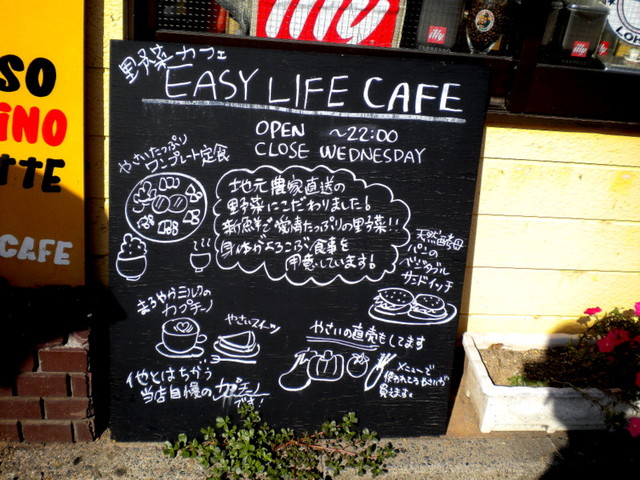 野菜カフェ
EASY LIFE CAFE
OPEN ～22:00
CLOSE WEDNESDAY
やさいたっぷり
ワンプレート定食
地元農家直送の
野菜にこだわりました!
新鮮で愛情たっぷりの野菜!!
身体がよろこぶ食事を
用意しています!
天然酵母
パンの
ベジタブル
サンドイッチ
まろやかミルクの
カプチーノ
やさいスイーツ
やさいの直売もしてます
メニューで
使われてるやさいが
買えます。
他とはちがう
当店自慢の
カプチーノ
illy
illy
illy
SO
INO
TTE
CAFE